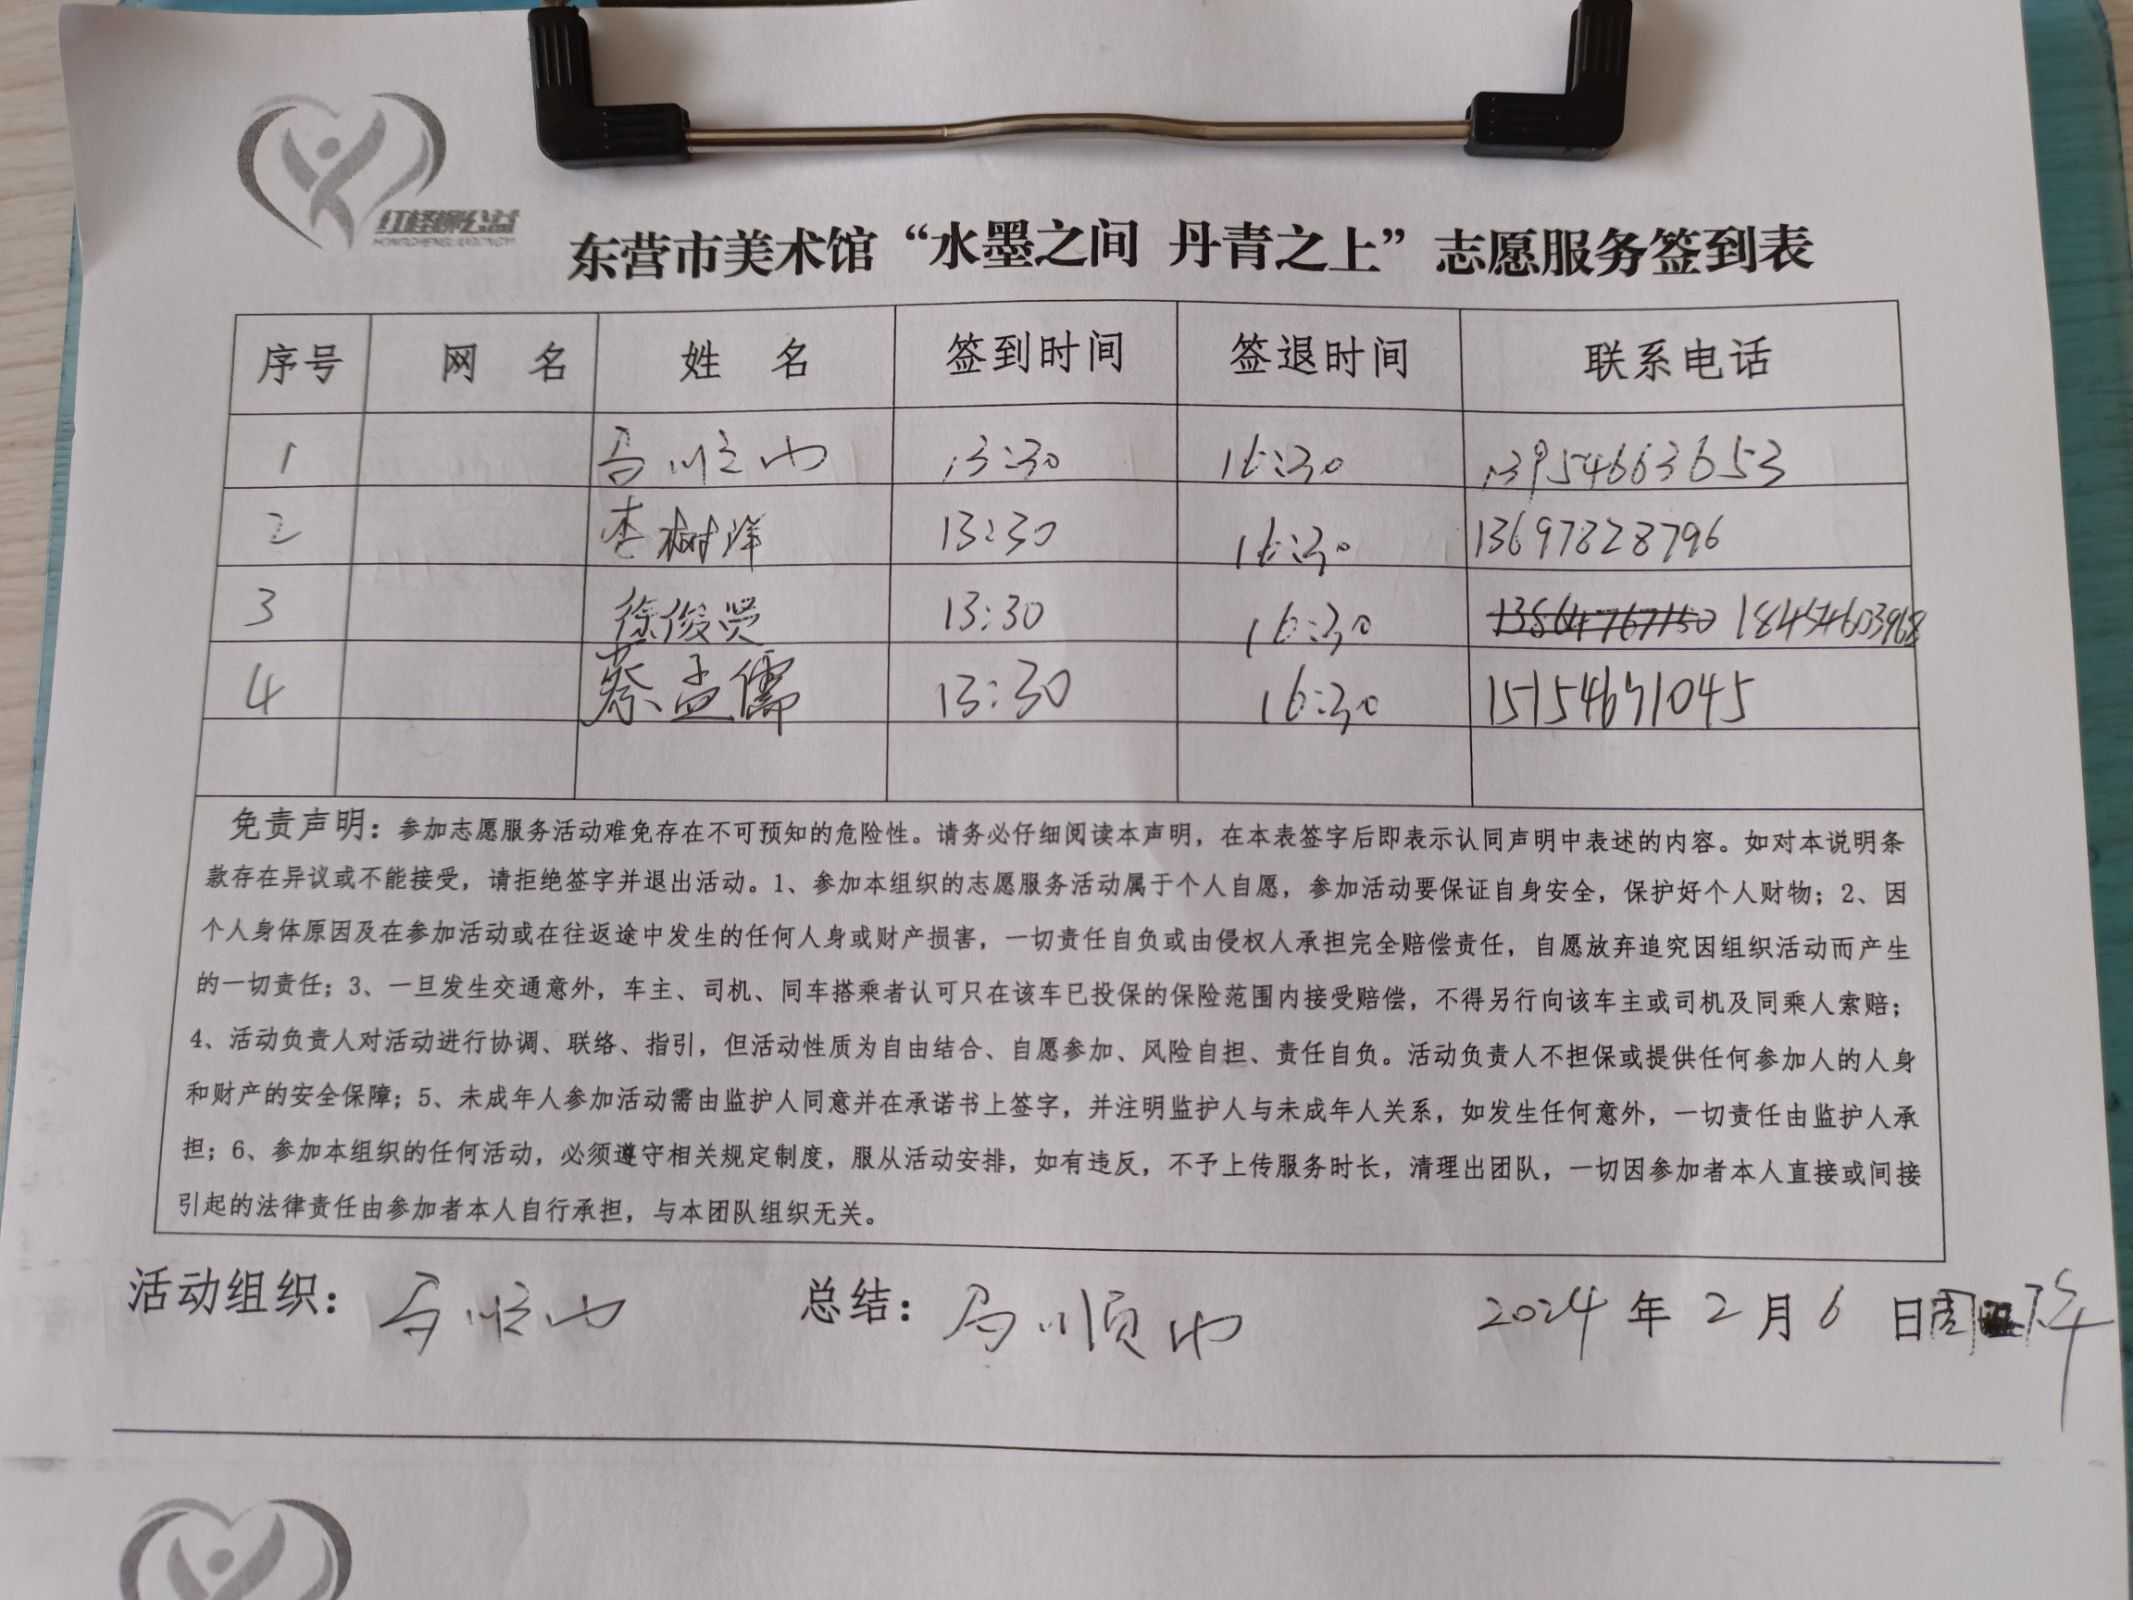 红柽柳公益
东营市美术馆“水墨之间 丹青之上”志愿服务签到表
序号 网 名 姓 名 签到时间 签退时间 联系电话
1 马顺山 13:30 16:30 13954663653
2 李树洋 13:30 16:30 13697828796
3 徐俊贤 13:30 16:30 13864767150 18454603968
4 蔡孟儒 13:30 16:30 15154671045
免责声明：参加志愿服务活动难免存在不可预知的危险性。请务必仔细阅读本声明，在本表签字后即表示认同声明中表述的内容。如对本说明条
款存在异议或不能接受，请拒绝签字并退出活动。1、参加本组织的志愿服务活动属于个人自愿，参加活动要保证自身安全，保护好个人财物；2、因
个人身体原因及在参加活动或在往返途中发生的任何人身或财产损害，一切责任自负或由侵权人承担完全赔偿责任，自愿放弃追究因组织活动而产生
的一切责任；3、一旦发生交通意外，车主、司机、同车搭乘者认可只在该车已投保的保险范围内接受赔偿，不得另行向该车主或司机及同乘人索赔；
4、活动负责人对活动进行协调、联络、指引，但活动性质为自由结合、自愿参加、风险自担、责任自负。活动负责人不担保或提供任何参加人的人身
和财产的安全保障；5、未成年人参加活动需由监护人同意并在承诺书上签字，并注明监护人与未成年人关系，如发生任何意外，一切责任由监护人承
担；6、参加本组织的任何活动，必须遵守相关规定制度，服从活动安排，如有违反，不予上传服务时长，清理出团队，一切因参加者本人直接或间接
引起的法律责任由参加者本人自行承担，与本团队组织无关。
活动组织：马顺山 总结：马顺山 2024年2月6日周二下午